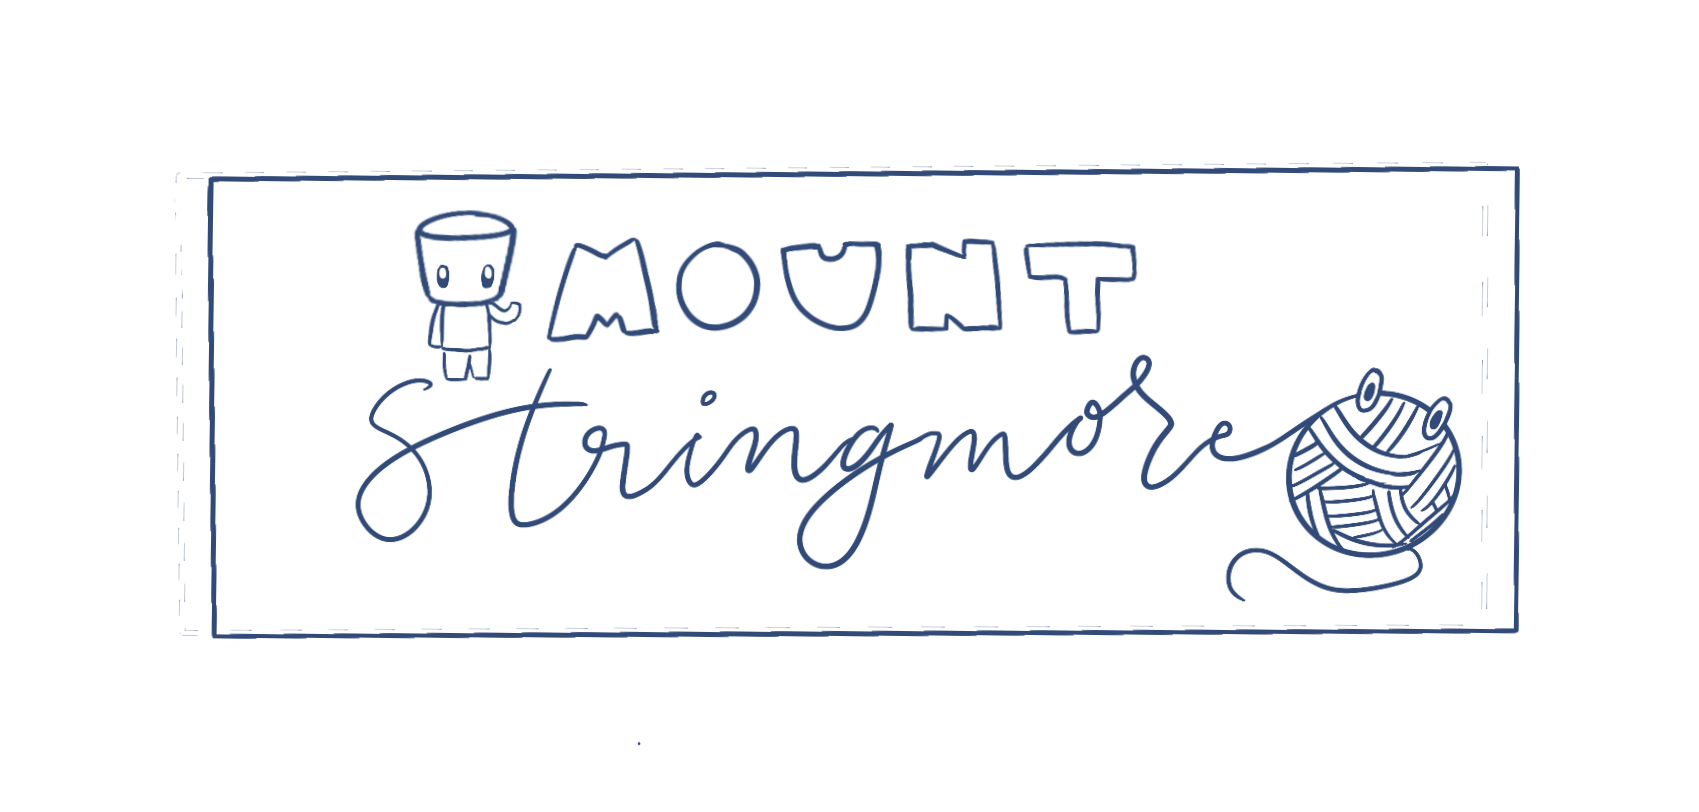 MOUNT
Stringmore